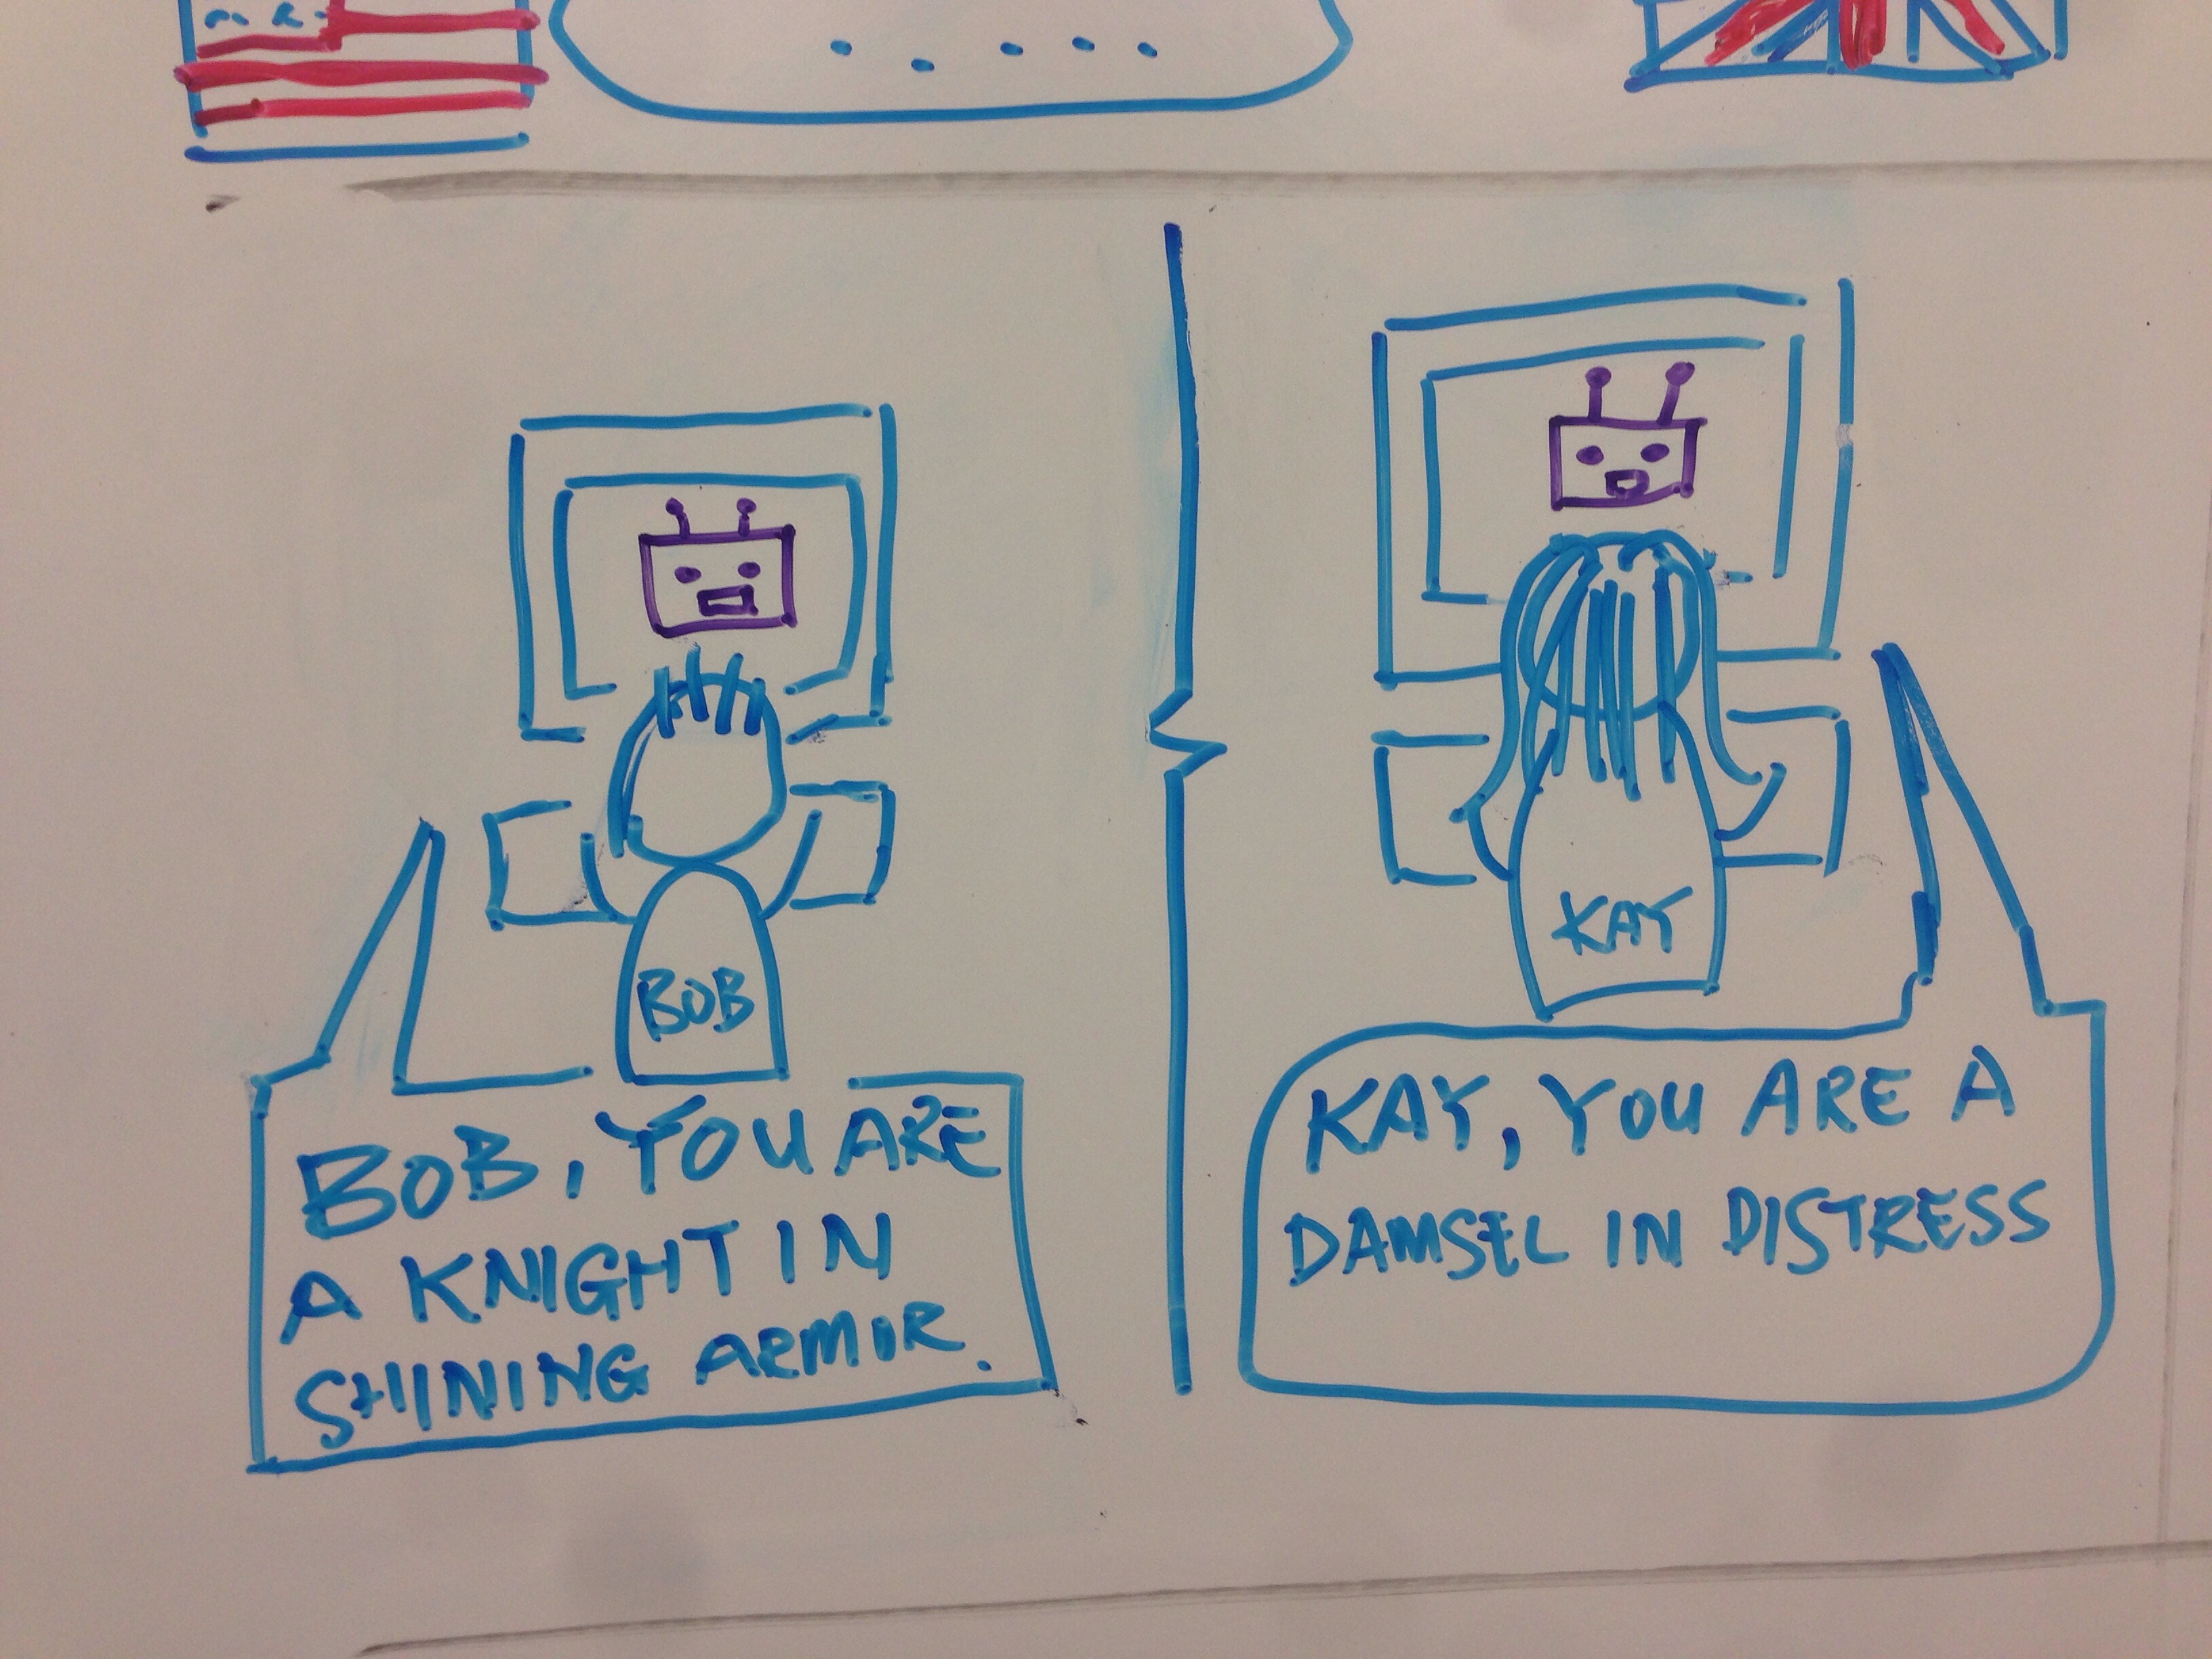 BOB
KAY
BOB, YOU ARE
A KNIGHT IN
SHINING ARMOR.
KAY, YOU ARE A
DAMSEL IN DISTRESS